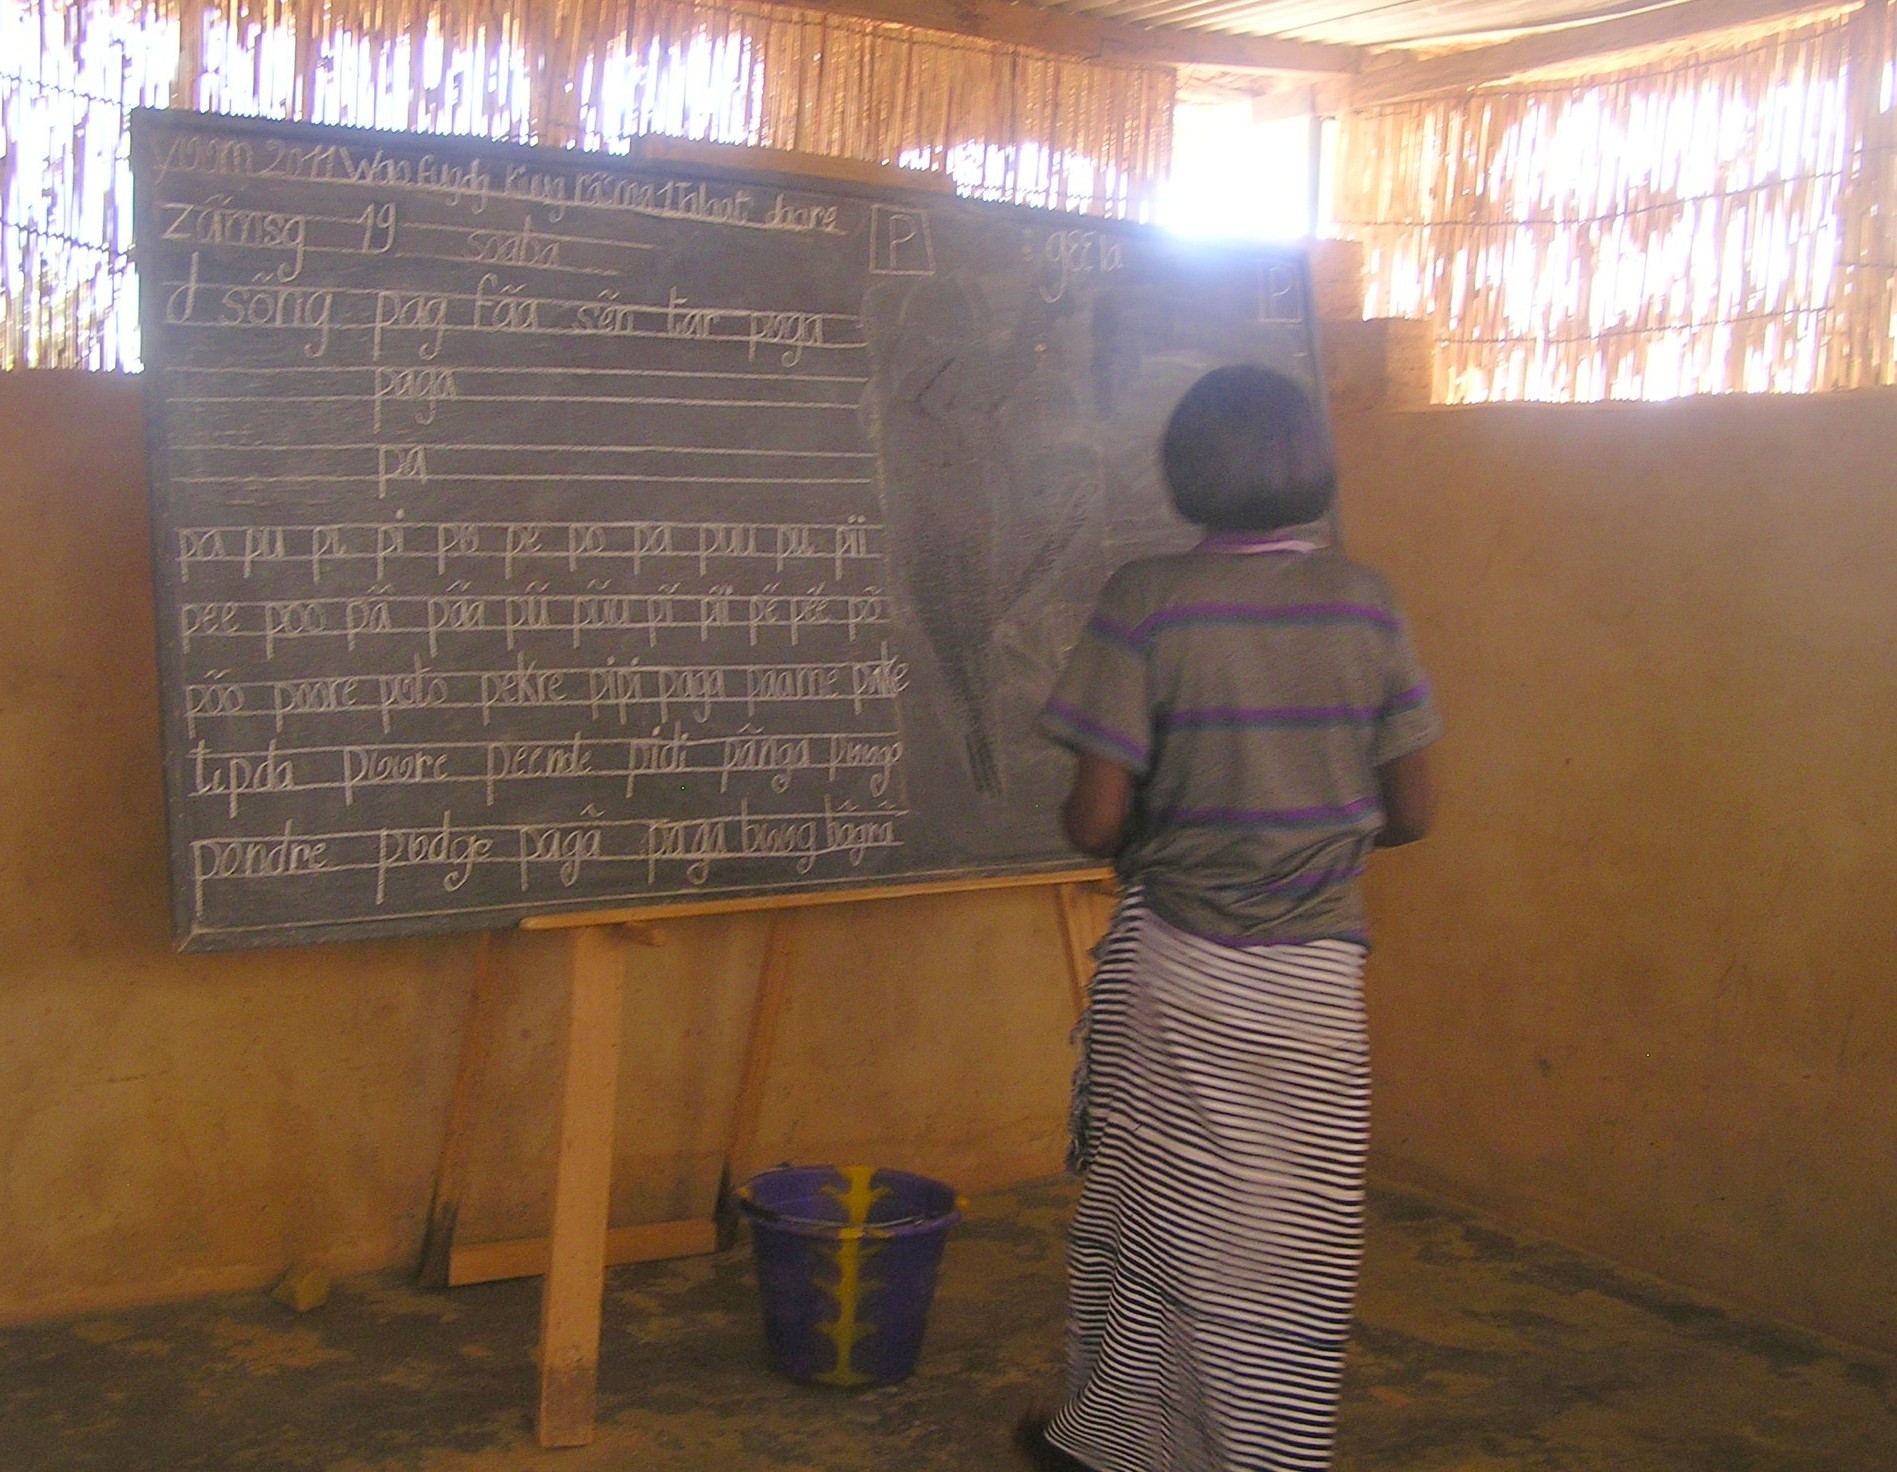 yʋʋm 2011 Wao fugdg kiuug rasma 1 Talaat daare
zãmsg 19 soaba
P
gɛɛla
P
d sõng pag fãa sẽn tar puga
paga
pa
pa pu pɩ pi pʋ pe po pa puu pu pii
pee poo pã pãa pũ pũu pĩ pĩi pẽ pẽe põ
põo poore puto pekre pipi paga paame pʋke
tɩpda pʋʋre peende pidi pãnga puugo
pondre pʋdge pagã paga buug bãgrã